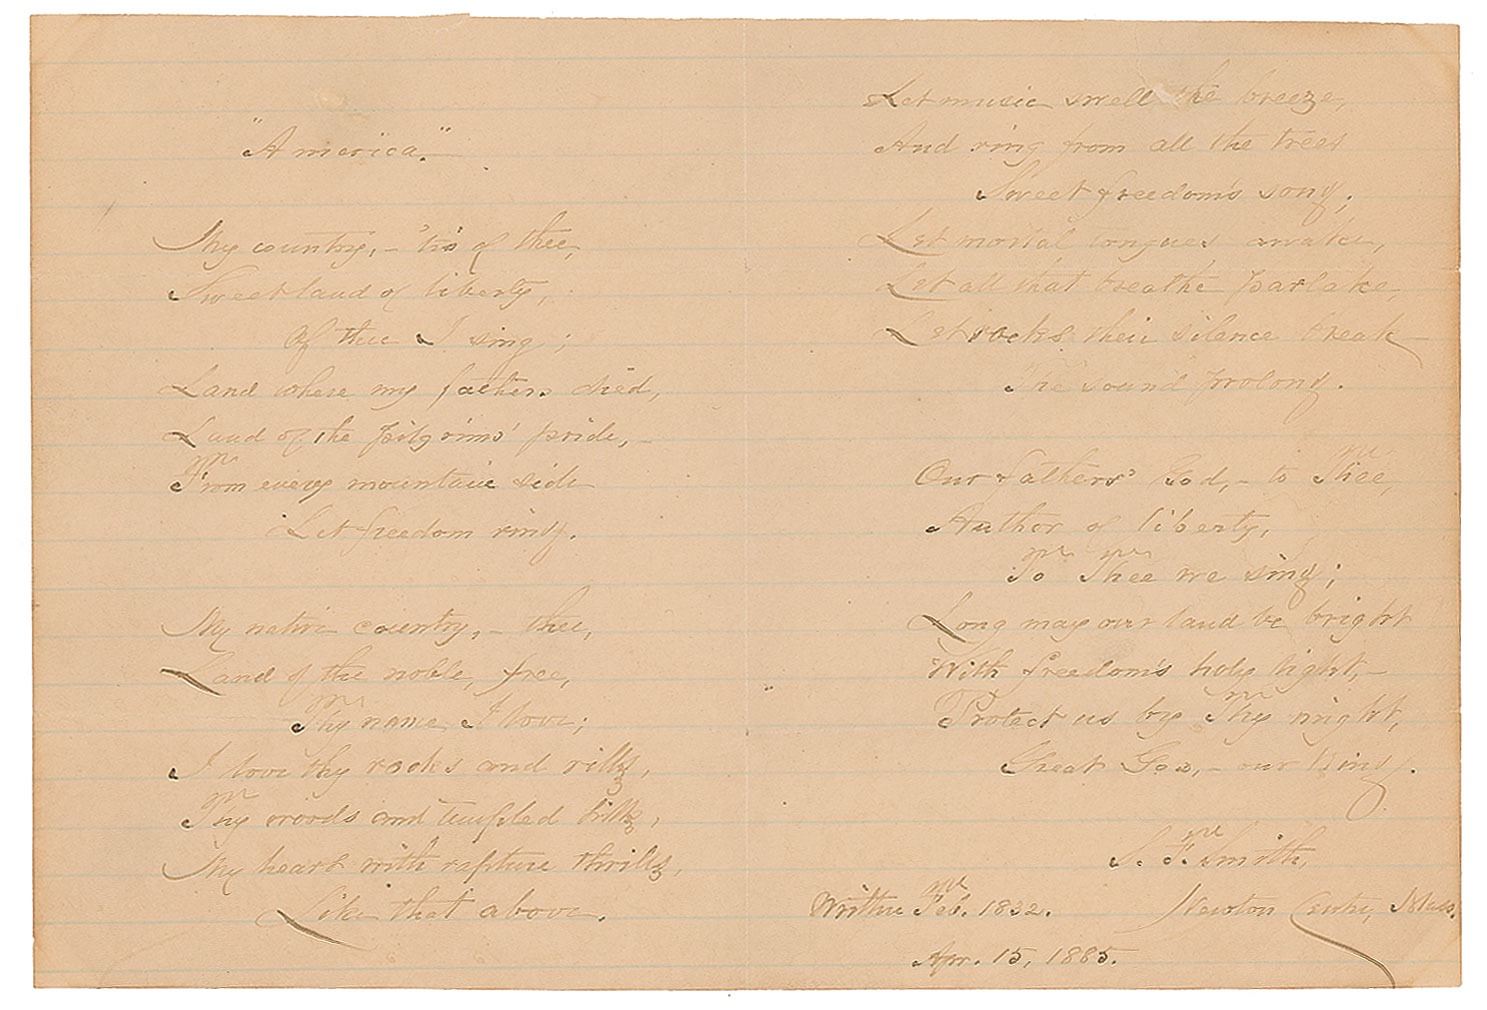 "America."
My country, – 'tis of thee,
Sweet land of liberty,
Of thee I sing;
Land where my fathers died,
Land of the pilgrims' pride, –
From every mountain side
Let freedom ring.
My native country, – thee,
Land of the noble, free,
Thy name I love;
I love thy rocks and rills,
Thy woods and templed hills,
My heart with rapture thrills,
Like that above.
Let music swell the breeze,
And ring from all the trees
Sweet freedom's song;
Let mortal tongues awake,
Let all that breathe partake,
Let rocks their silence break –
The sound prolong.
Our fathers' God, – to Thee,
Author of liberty,
To Thee we sing;
Long may our land be bright
With freedom's holy light, –
Protect us by Thy might,
Great God, – our King.
S. F. Smith,
Written Feb. 1832. Newton Centre, Mass.
Apr. 15, 1885.